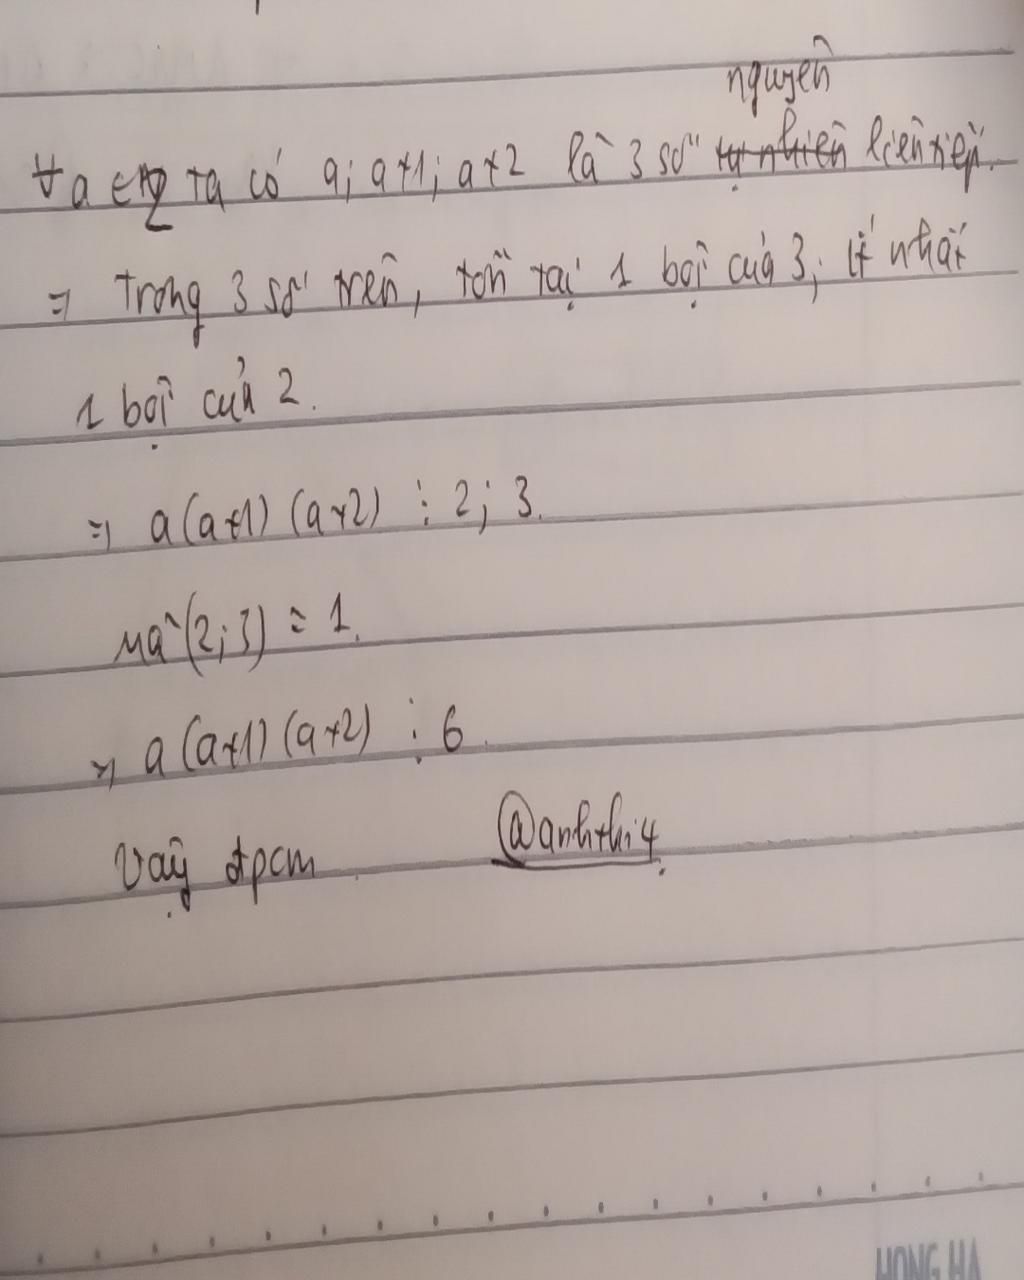 nguyên
∀a ∈ Z ta có a; a+1; a+2 là 3 số tự nhiên liên tiếp.
⇒ Trong 3 số trên, tồn tại 1 bội của 3; ít nhất
1 bội của 2.
⇒ a(a+1)(a+2) ⋮ 2; 3.
Mà (2;3) = 1.
⇒ a(a+1)(a+2) ⋮ 6.
Vậy đpcm. @anhthi4.
HONG HA